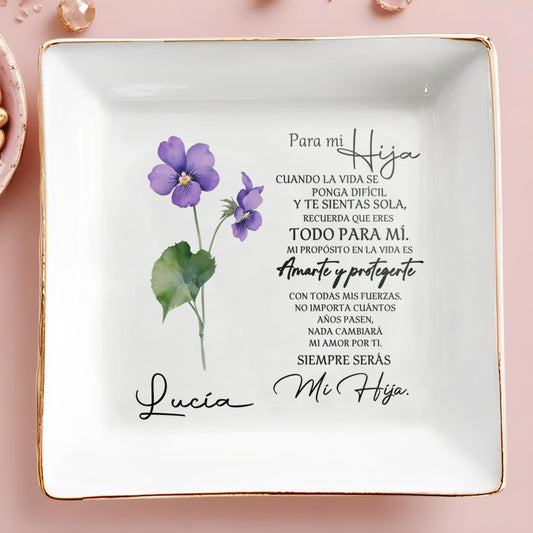 Para mi
Hija
CUANDO LA VIDA SE
PONGA DIFÍCIL
Y TE SIENTAS SOLA,
RECUERDA QUE ERES
TODO PARA MÍ.
MI PROPÓSITO EN LA VIDA ES
Amarte y protegerte
CON TODAS MIS FUERZAS.
NO IMPORTA CUÁNTOS
AÑOS PASEN,
NADA CAMBIARÁ
MI AMOR POR TI.
SIEMPRE SERÁS
Mi Hija.
Lucía